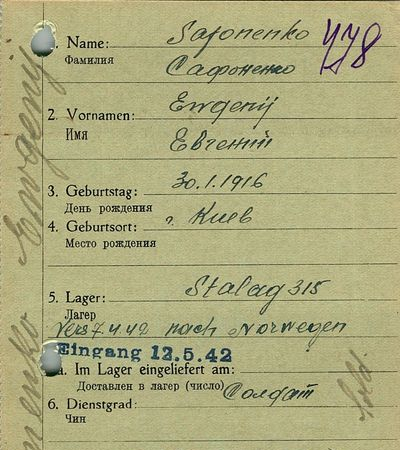 1. Name: Safonenko 778
Фамилия Сафоненко
2. Vornamen: Ewgenij
Имя Евгений
3. Geburtstag: 30.1.1916
День рождения
4. Geburtsort: г. Киев
Место рождения
5. Lager: Stalag 315
Лагер
Vers 7.4.42 nach Norwegen
Eingang 12.5.42
a. Im Lager eingeliefert am:
Доставлен в лагер (число)
6. Dienstgrad: Солдат
Чин
Sold
Ewgenij